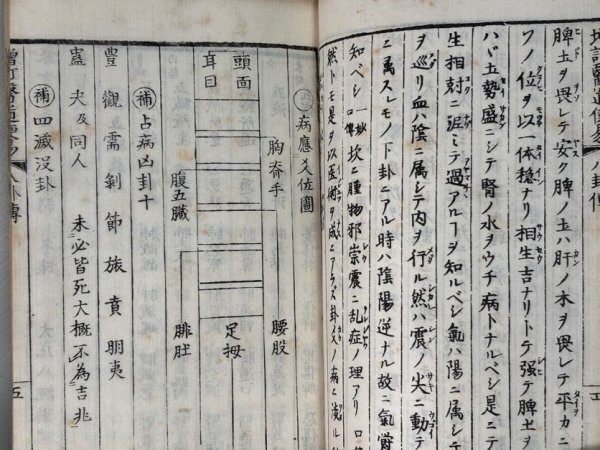 増訂醫道便易 八卦傳
脾土ヲ畏レテ安ク脾ノ土ハ肝ノ木ヲ畏レテ平カニ
ワノ位ヲ以一体穏ナリ相生吉ナリトテ强テ脾胃ヲ
ハバ土勢盛ニシテ腎ノ水ヲウチ病トナルベシ是ニテ
生相尅ニ泥ミテ過アルヿヲ知ルベシ氣ハ陽ニ属シテ
ヲ巡リ血ハ陰ニ属シテ内ヲ行ル然ハ震ノ尖ニ動テ
ニ属スレモノ卦ニアル時ハ陰陽逆ナル故ニ氣
知ベシ 坎ニ腫物邪祟震ニ乱症ノ理アリ口傳
然トモ是ヲ以医術ヲ成ニアラズ卦爻ノ病ニ
補 病應爻位圖
頭面
耳目
胸脊手
腹五臟
腰股
腓肚
足拇
補 占病凶卦十
豊 觀 需 剝 節 旅 賁 明夷
蠱 夬及同人 未必皆死大概不為吉兆
補 四滅没卦
増訂醫道便易 八卦傳 五